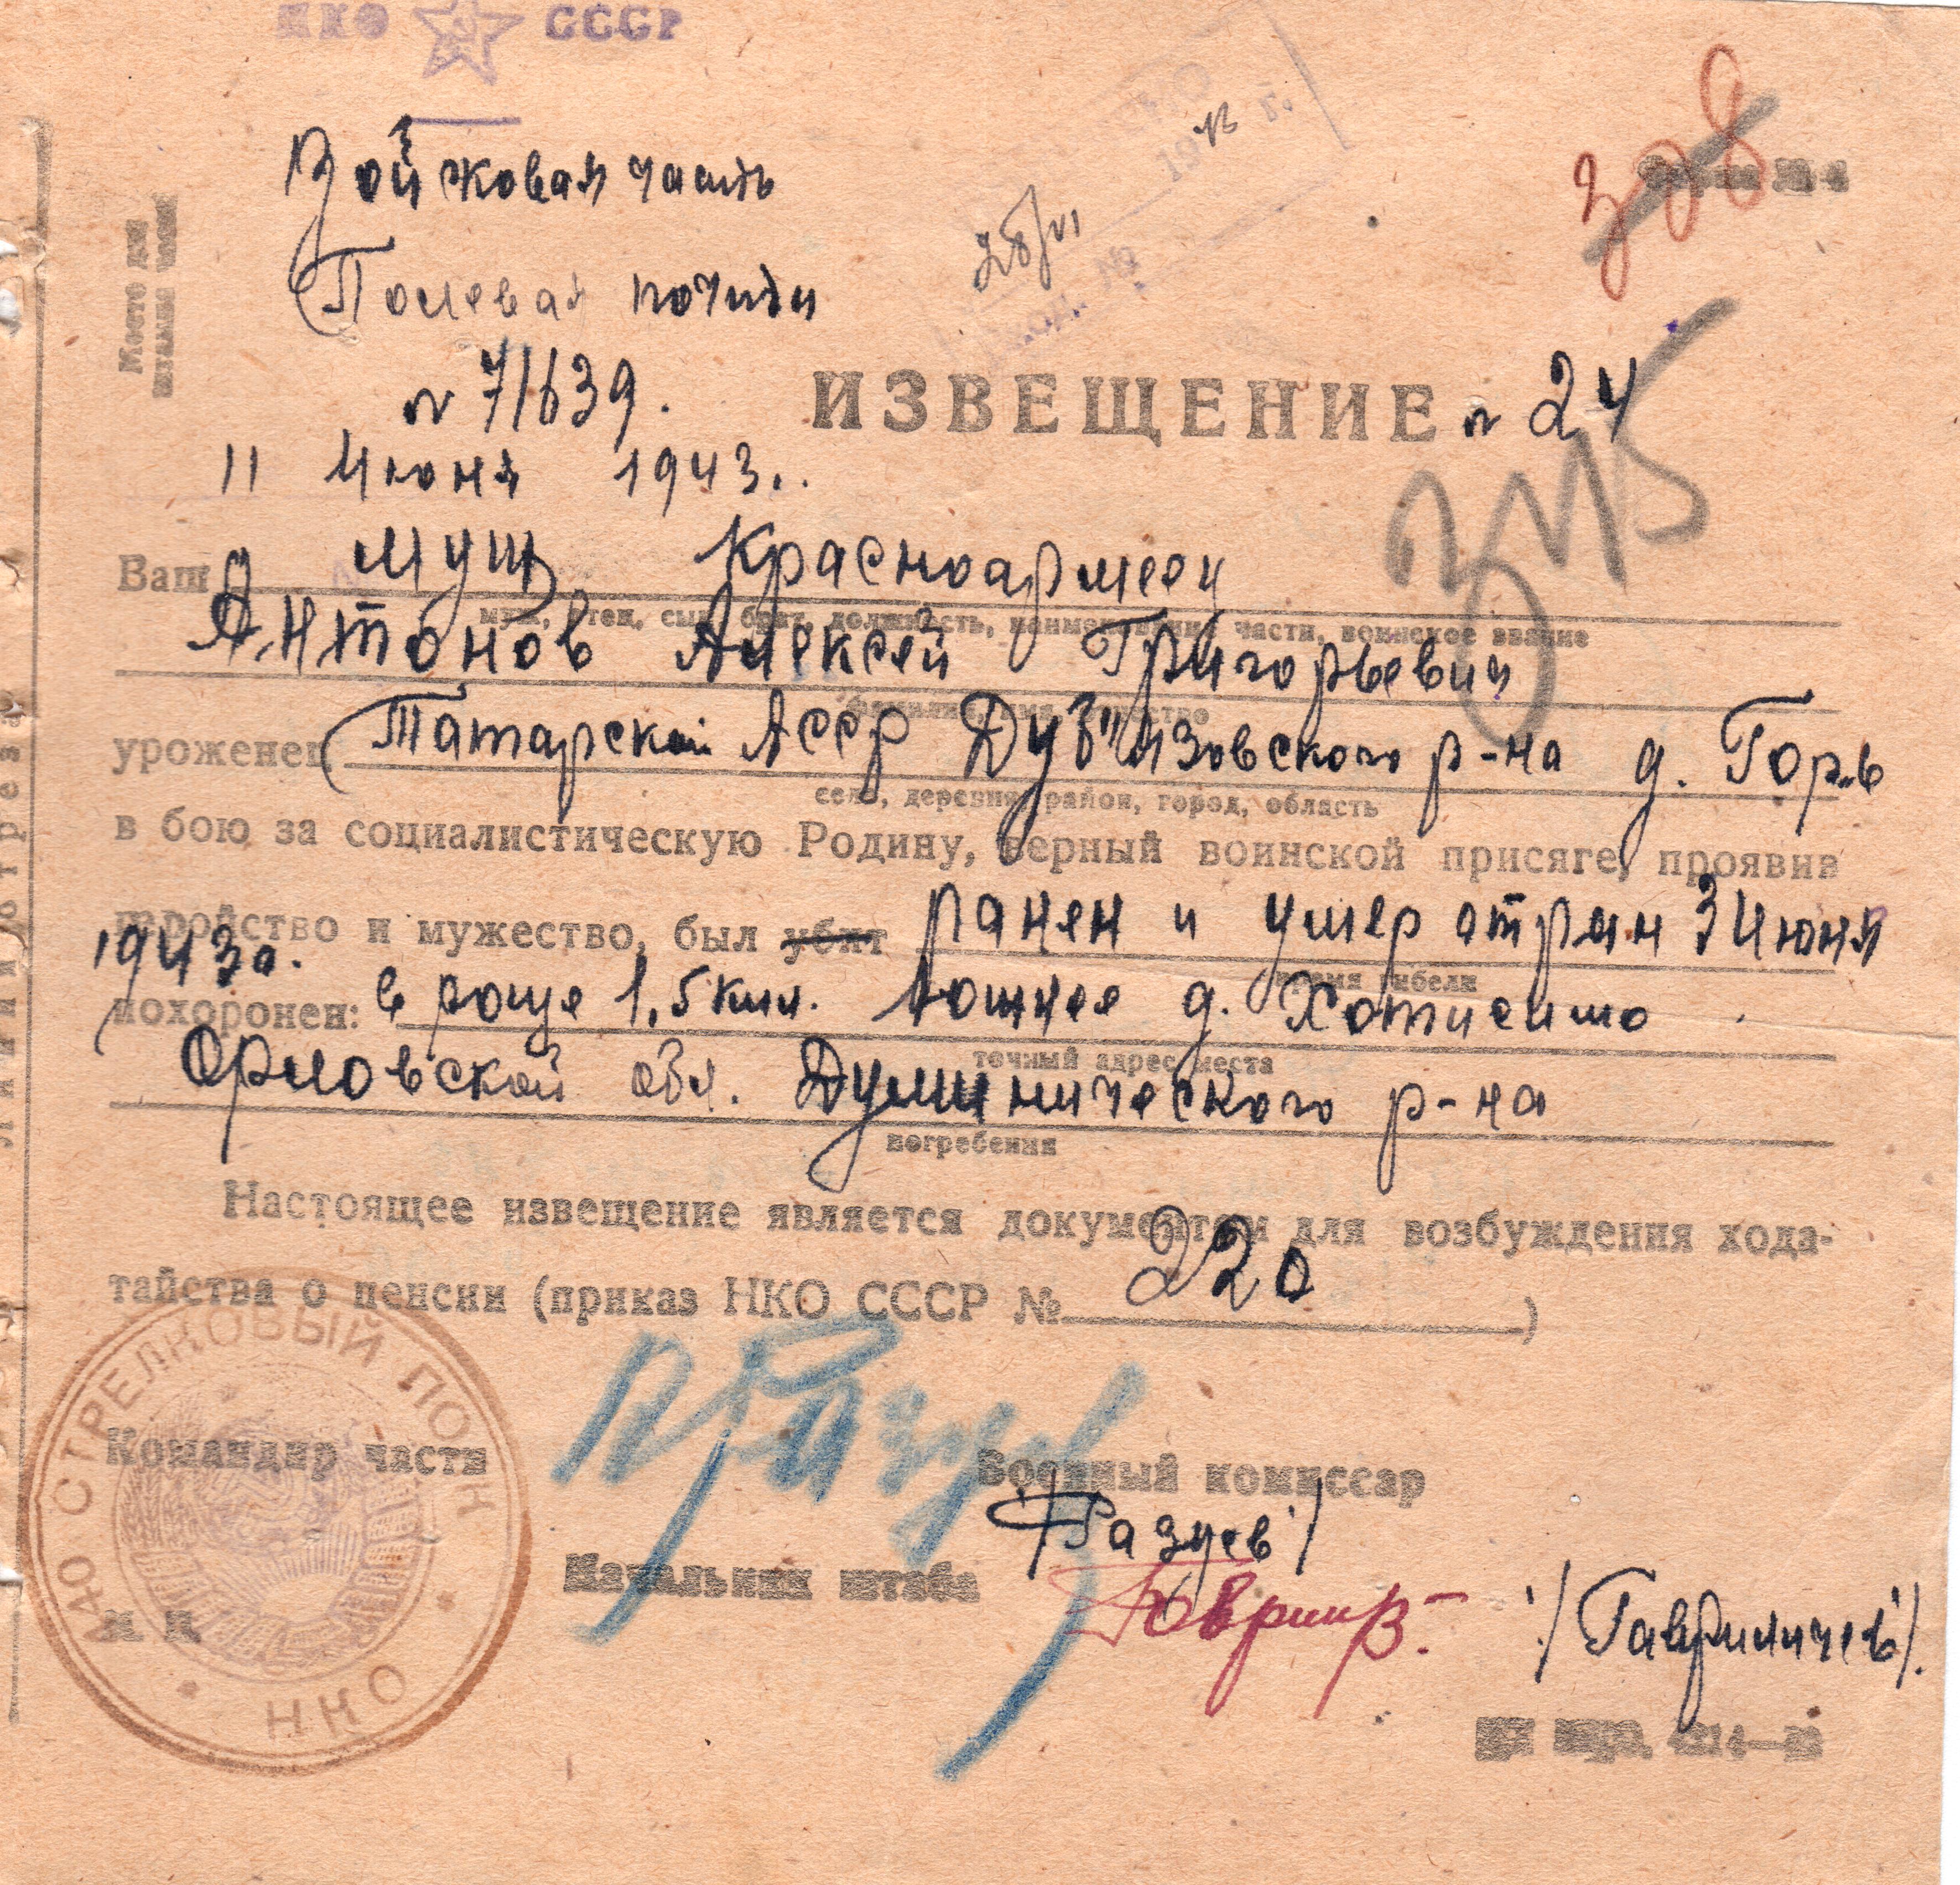 НКО СССР
Место для
штампа части
Войсковая часть
19 43 г.
328
Форма № 4
28/VI
Полевая почта
№ 71639.
ИЗВЕЩЕНИЕ № 24
345
11 Июня 1943.
Ваш муж Красноармеец
муж, отец, сын, брат, должность, наименование части, воинское звание
Антонов Алексей Григорьевич
фамилия, имя, отчество
уроженец Татарской АССР Дубъязовского р-на д.
село, деревня, район, город, область
в бою за социалистическую Родину, верный воинской присяге, проявив
геройство и мужество, был убит ранен и умер от ран 3 Июня
время гибели
1943г.
похоронен: в роще 1,5 км. Южнее д.
точный адрес места
Орловской обл. Думиничского р-на
погребения
Настоящее извещение является документом для возбуждения хода-
тайства о пенсии (приказ НКО СССР № 220)
СТРЕЛКОВЫЙ ПОЛК
НКО
Командир части
Военный комиссар
/Разуев/
Начальник штаба
/Гавриличев/.
М. П.
линия отреза